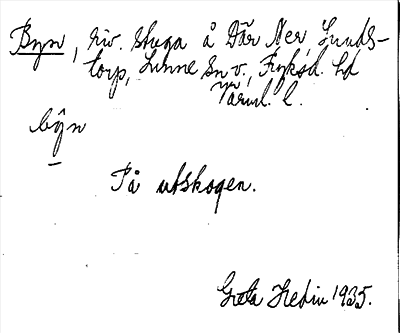 Byn, riv. stuga å Där Ner, Lunds-
torp, Lunne Sn v., Fryksd. hd
Värml. l.
býn
På utskogen.
Greta Hedin 1935.